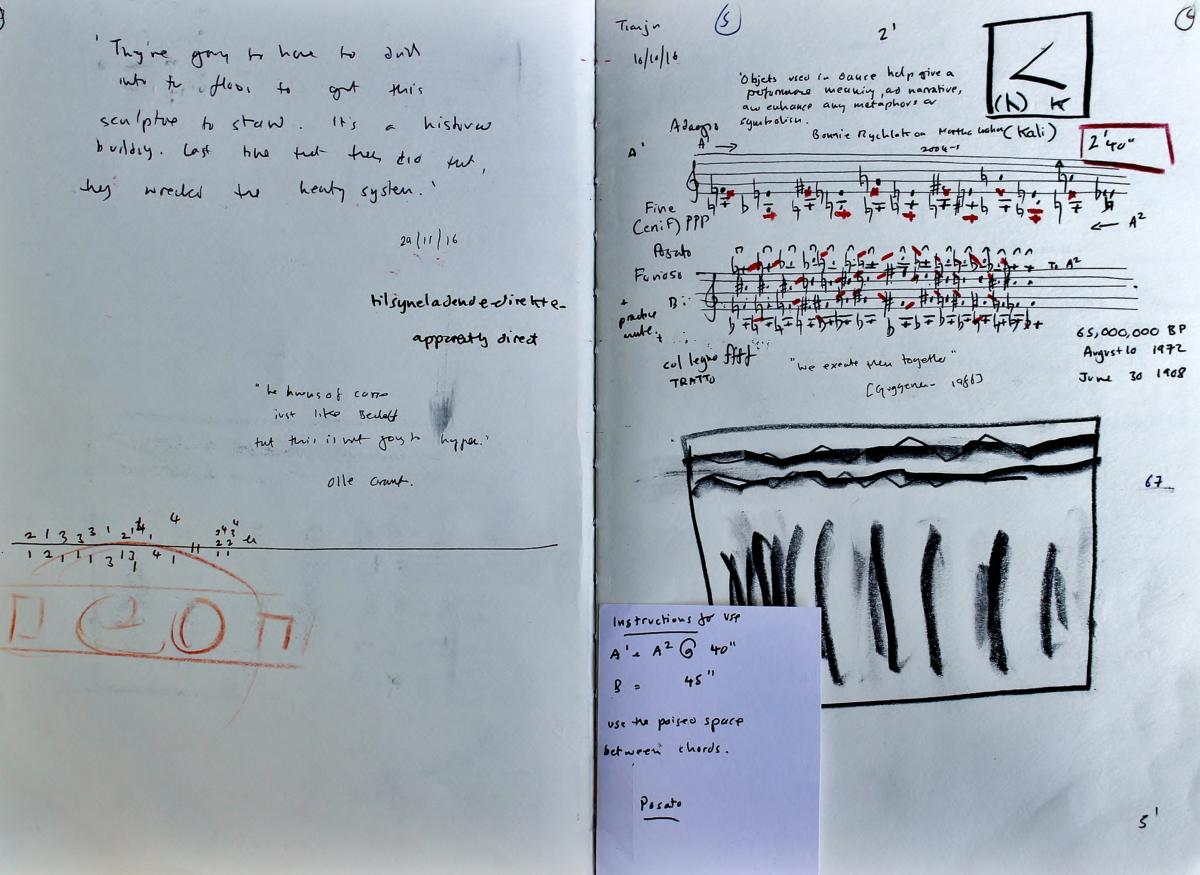 'They're going to have to drill
into the floor to get this
sculpture to stand. It's a historical
building. Last time that they did that,
they wrecked the heating system.'
29/11/16
tilsyneladende-direkte-
apparently direct
just like
but this is not going to hyper.'
Olle
2 1 3 3 3 1 2
1 2 1 1 3 1 3 4 1
Tianjin
16/10/16
5
2'
<
(h) K
'Objets used in dance help give a
performance meaning, and narrative,
and enhance any metaphors or
symbolism.
Bonnie Rychlak on Martha Graham (Kali)
2004-5
2'40"
Adagio
A'
A'
Fine
(eni F) PPP
← A²
Posato
Furioso
B:
To A²
+
practice
mute
+
col legno ffff
TRATTO
"We execute them together"
[Guggenheim 1986]
65,000,000 BP
August 10 1972
June 30 1908
67
Instructions for use
A' & A² 40"
B = 45"
use the poised space
between chords.
Posato
5'